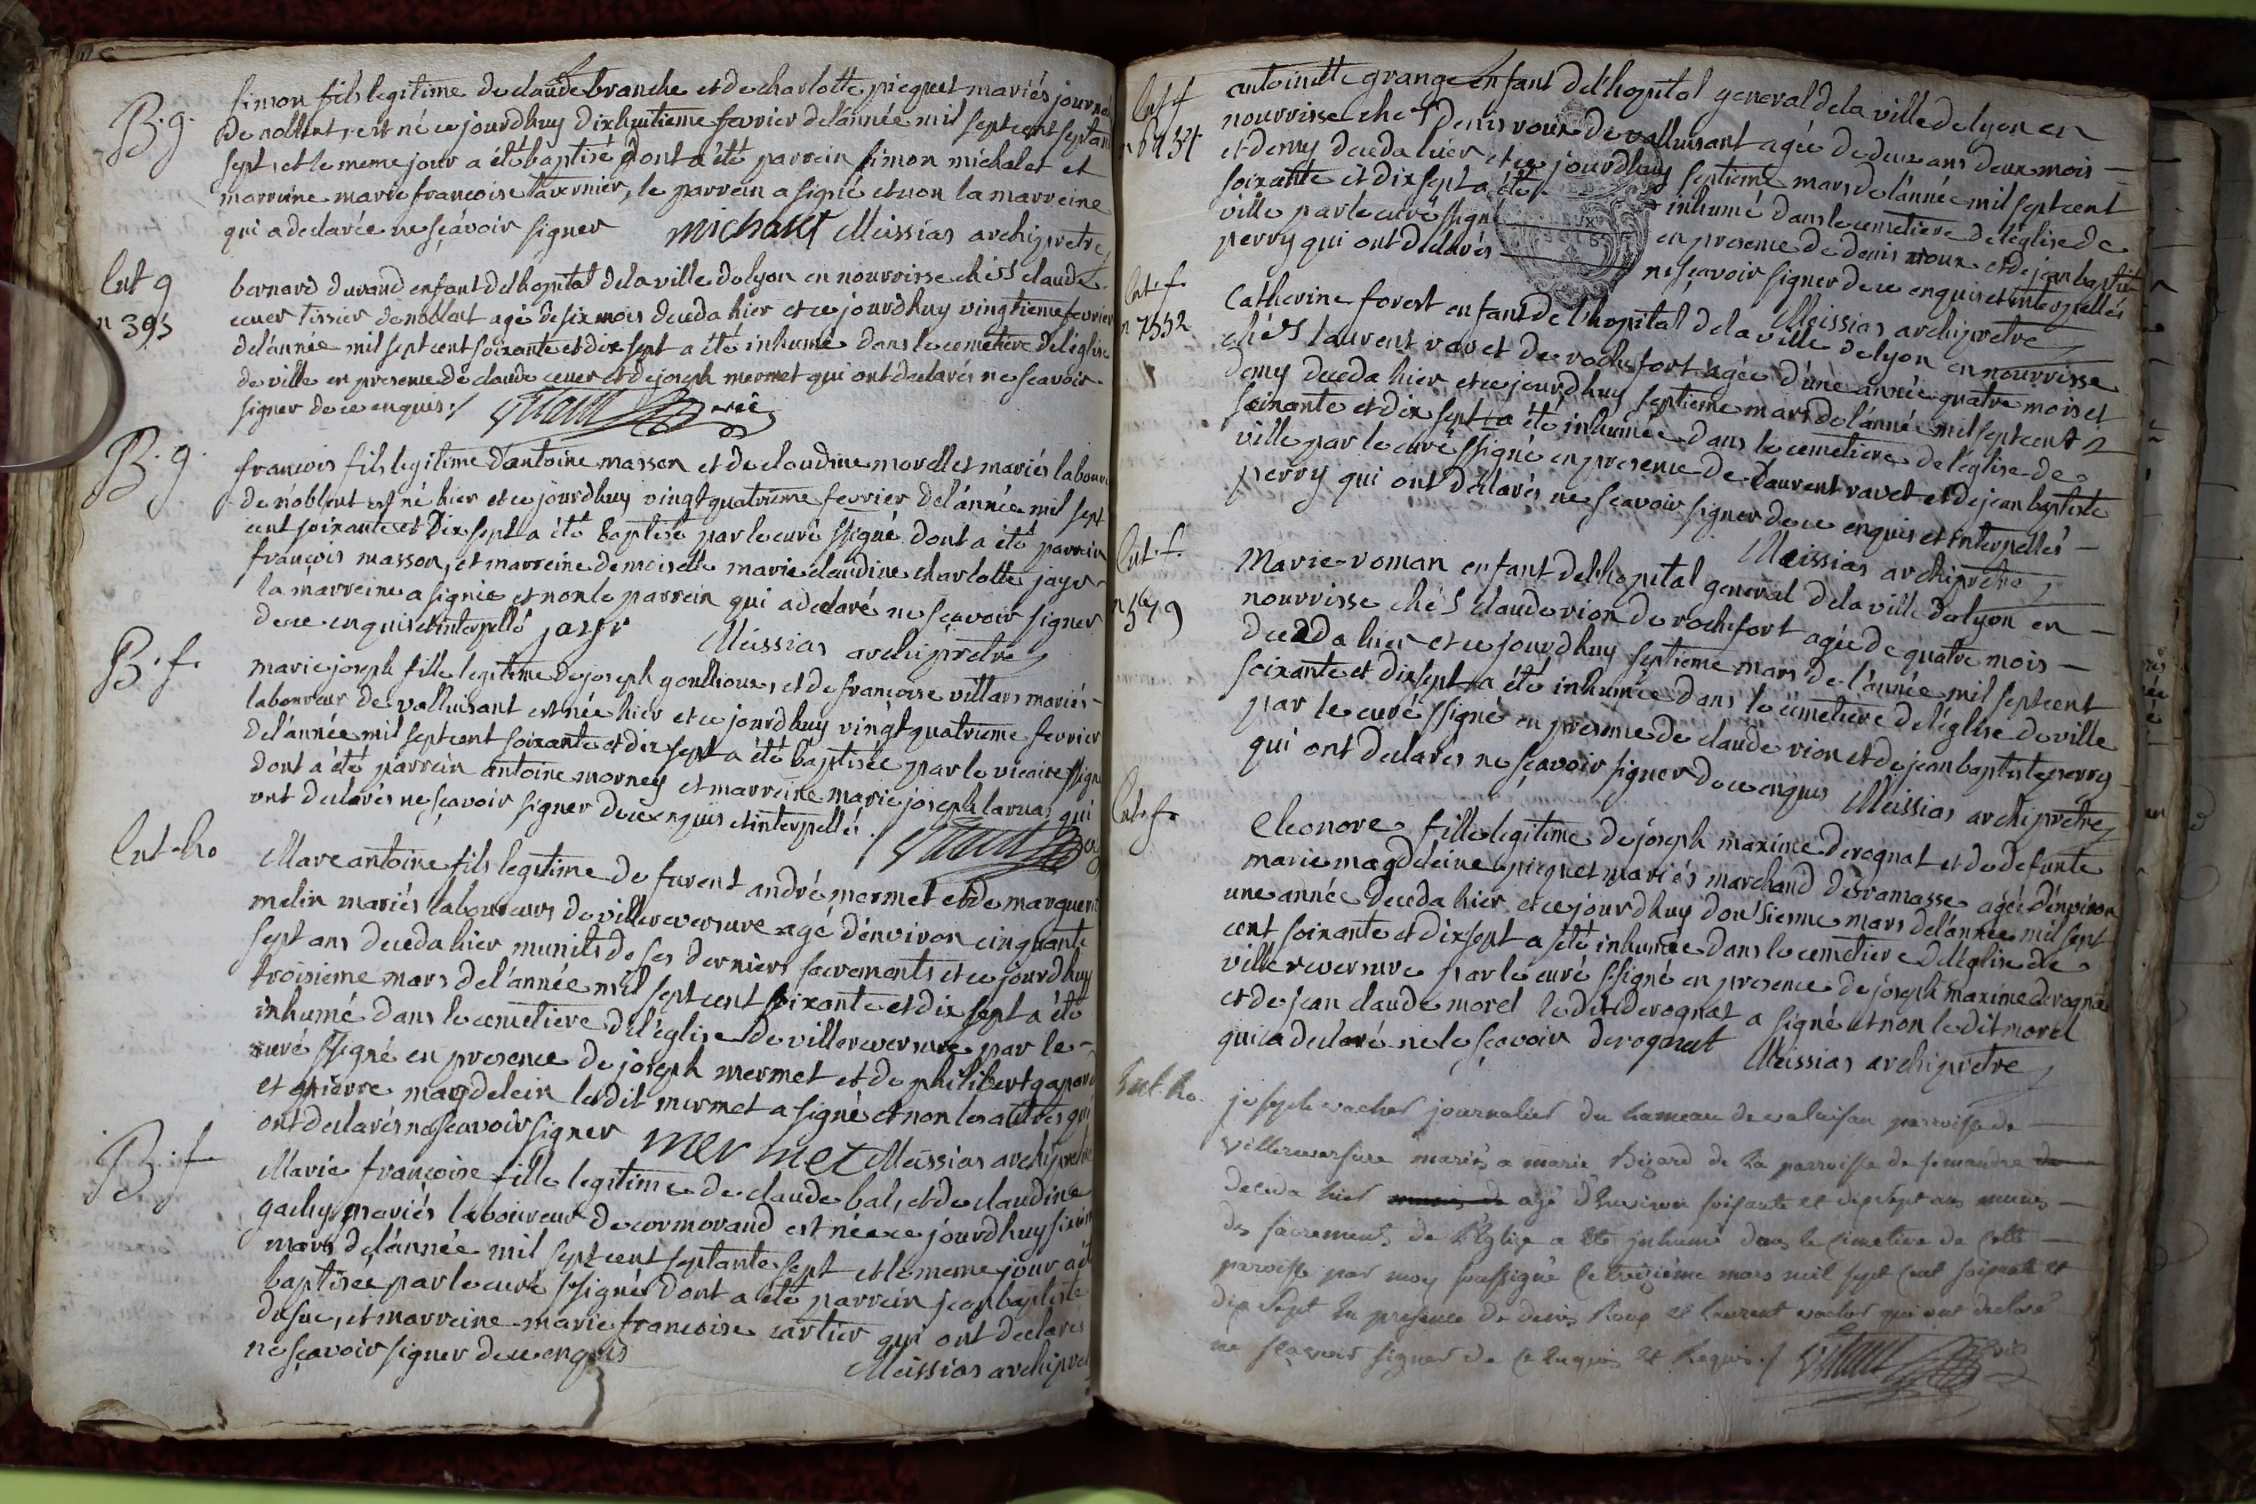 B. g.
simon fils legitime de claude branche et de charlotte picquet mariés journ
de noblent, est né ce jourdhuy dixhuitieme fevrier de l'année mil sept cent septan
sept, et le meme jour a été baptisé dont a été parrein simon michalet et
marreine marie francoise tavernier, le parrein a signé et non la marreine
qui a declarée ne sçavoir signer michalet Meissias archipretre
Ent g
n 393
bernard durand enfant del'hopital de la ville de lyon en nourrisse chés claude
cuer tissier de noblent agé de six mois deceda hier et ce jourdhuy vingtieme fevrier
de l'année mil sept cent soixante et dix sept a été inhumé dans le cemetiere de l'église
de ville en presence de claude cuer et de joseph mermet qui ont declarés ne scavoir
signer de ce enquis ./
B. g.
francois fils legitime d'antoine masson et de claudine morellet mariés labour
de noblent est né hier et ce jourdhuy vingt quatrieme fevrier de l'année mil sept
cent soixante et dix sept a été baptisé par le curé ssigné dont a été parrein
francois masson, et marreine demoiselle marie claudine charlotte jayr
la marreine a signée et non le parrein qui a declaré ne scavoir signer
de ce enquis et interpellé jayr Meissias archipretre
B. f.
marie joseph fille legitime de joseph goullioux, et de francoise villars mariés
laboureur de valluisant est née hier et ce jourdhuy vingt quatrieme fevrier
de l'année mil sept cent soixante et dix sept a été baptisée par le vicaire ssign
dont a été parrein antoine morney et marreine marie joseph larua qui
ont declarés ne sçavoir signer de ce enquis et interpellés
Ent. ho
Marc antoine fils legitime de furent andré mermet et de marguerit
melin mariés laboureurs de villereversure agé d'environ cinquante
sept ans deceda hier munits de ses derniers sacrements et ce jourdhuy
troisieme mars de l'année mil sept cent soixante et dix sept a été
inhumé dans le cemetiere de l'église de villereversure par le
curé ssigné en presence de joseph mermet et de philibert gapand
et pierre magdelein ledit mermet a signé et non les autres qui
ont declarés ne scavoir signer mermet Meissias archipretre
B. f
Marie francoise fille legitime de claude bal, et de claudine
gachy mariés laboureur de cormorand est née ce jourdhuy sixiem
mars de l'année mil sept cent septante sept et le meme jour a ét
baptisée par le curé ssigné dont a été parrein jean baptiste
dusuc, et marreine marie francoise cartier qui ont declarés
ne sçavoir signer de ce enquis
Meissias archipret
Ent. f
n 6434
antoinette grange enfant del'hopital general de la ville de lyon en
nourrisse chés denis roux de valluisant agée de deux ans deux mois
et demy deceda hier et ce jourdhuy septieme mars de l'année mil sept cent
soixante et dix sept a été inhumé dans le cemetiere de l'église de
ville par le curé ssigné en presence de denis roux et de jean baptiste
perry qui ont declarés ne sçavoir signer de ce enquis et interpellés
Meissias archipretre
Ent. f.
n 7552
Catherine forest enfant de l'hopital de la ville de lyon en nourrisse
chés laurent ravet de rochefort agée d'une année quatre mois et
demy deceda hier et ce jourdhuy septieme mars de l'année mil sept cent
soixante et dix sept a été inhumée dans le cemetiere de l'église de
ville par le curé ssigné en presence de Laurent ravet et de jean baptiste
perry qui ont declarés ne scavoir signer de ce enquis et interpellés
Meissias archipretre
Ent. f.
Marie roman enfant del'hopital general de la ville de lyon en
nourrisse chés claude rion de rochefort agée de quatre mois
deceda hier et ce jourdhuy septieme mars de l'année mil sept cent
soixante et dix sept a été inhumée dans le cemetiere de l'église de ville
par le curé ssigné en presence de claude rion et de jean baptiste perry
qui ont declarés ne sçavoir signer de ce enquis Meissias archipretre
Ent. f.
Eleonore fille legitime de joseph maxime derognat et de defunte
marie magdeleine picquet mariés marchand de ramasse agée d'environ
une année deceda hier et ce jourdhuy dousieme mars de l'année mil sept
cent soixante et dix sept a été inhumée dans le cemetiere de l'église de
villereversure par le curé ssigné en presence de joseph maxime derognat
et de jean claude morel ledit derognat a signé et non ledit morel
qui a declaré ne le sçavoir derognat Meissias archipretre
Ent. ho.
joseph vacher journalier du hameau de valuisan parroisse de
villereversure mariés a marie Bizard de la parroisse de simandre
deceda hier agé d'Environ soisante et dix sept ans munis
des sacrements de l'Eglise a été jnhumé dans le Cimetiere de cette
paroisse par moy soussigné le treizième mars mil sept Cent soixante et
dix sept En presence de denis Roux et laurent vacher qui ont declaré
ne sçavoir signer de ce Enquis et Requis ./